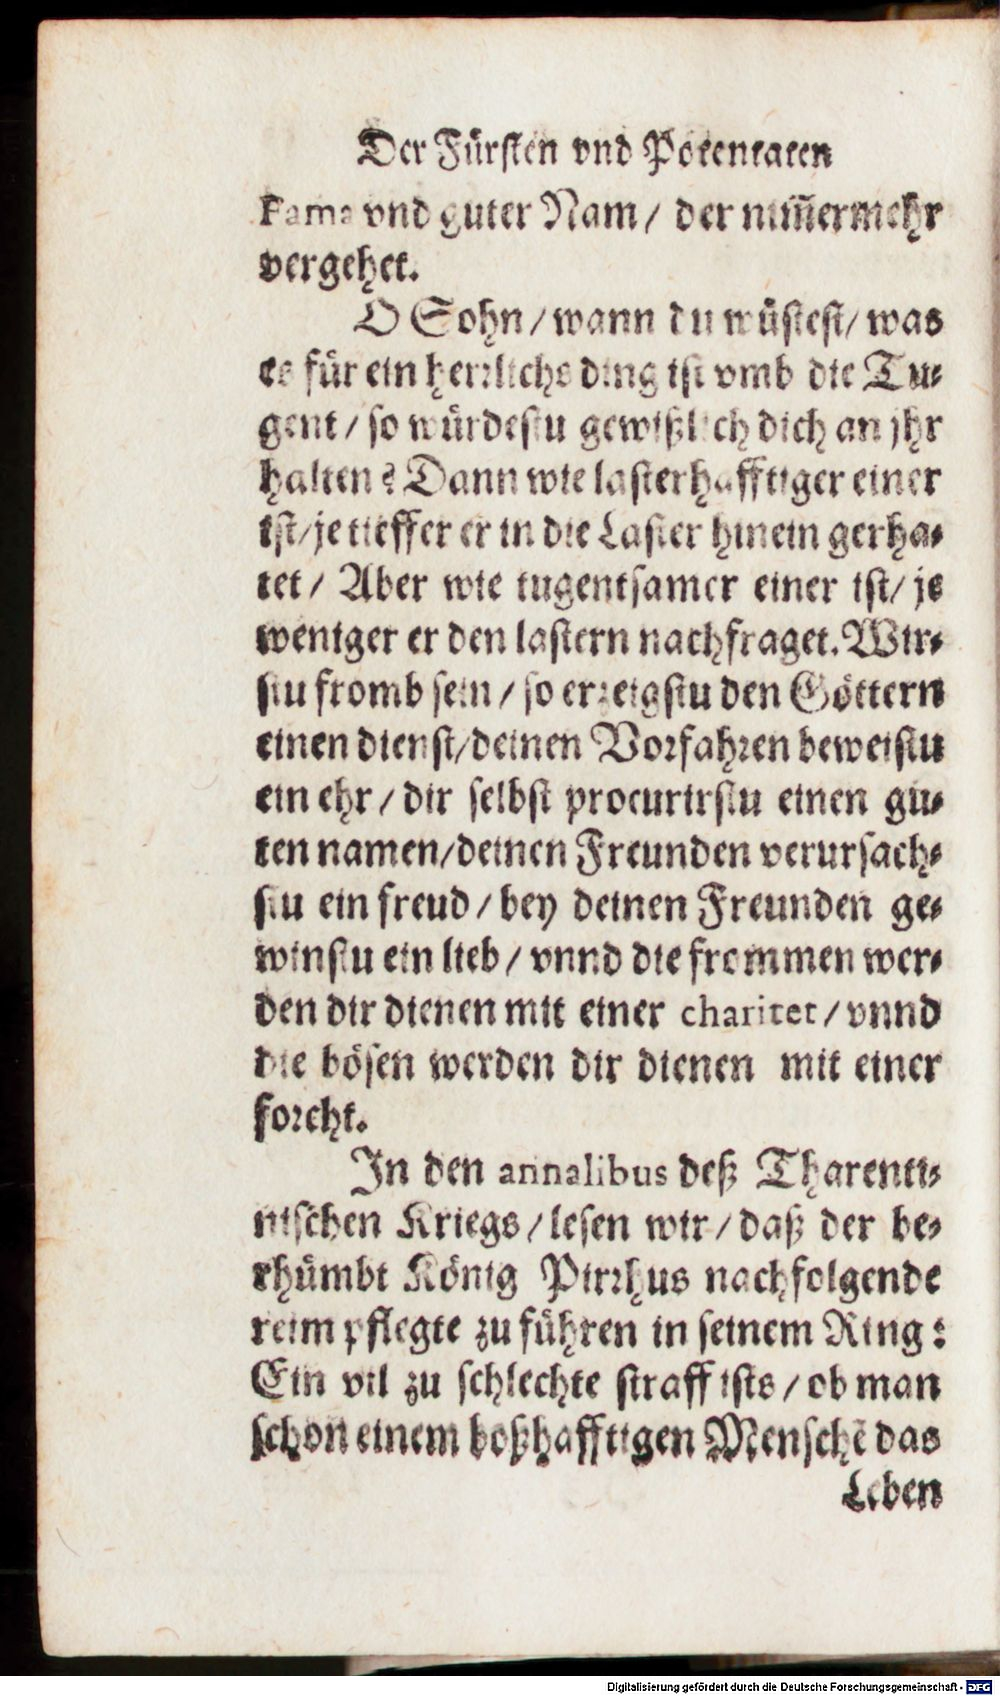 Der Fürsten vnd Potentaten
Fama vnd guter Nam / der nim̃ermehr
vergehet.
O Sohn / wann du wüstest / was
es für ein herrlichs ding ist vmb die Tu-
gent / so würdestu gewißlich dich an jhr
halten? Dann wie lasterhafftiger einer
ist / je tieffer er in die Laster hinein gerha-
tet / Aber wie tugentsamer einer ist / je
weniger er den lastern nachfraget. Wir-
stu fromb sein / so erzeigstu den Göttern
einen dienst / deinen Vorfahren beweistu
ein ehr / dir selbst procurirstu einen gu-
ten namen / deinen Freunden verursach-
stu ein freud / bey deinen Freunden ge-
winstu ein lieb / vnnd die frommen wer-
den dir dienen mit einer charitet / vnnd
die bösen werden dir dienen mit einer
forcht.
In den annalibus deß Tharenti-
nischen Kriegs / lesen wir / daß der be-
rhümbt König Pirrhus nachfolgende
reim pflegte zu führen in seinem Ring:
Ein vil zu schlechte straff ists / ob man
schon einem boßhafftigen Menschẽ das
Leben
Digitalisierung gefördert durch die Deutsche Forschungsgemeinschaft - DFG